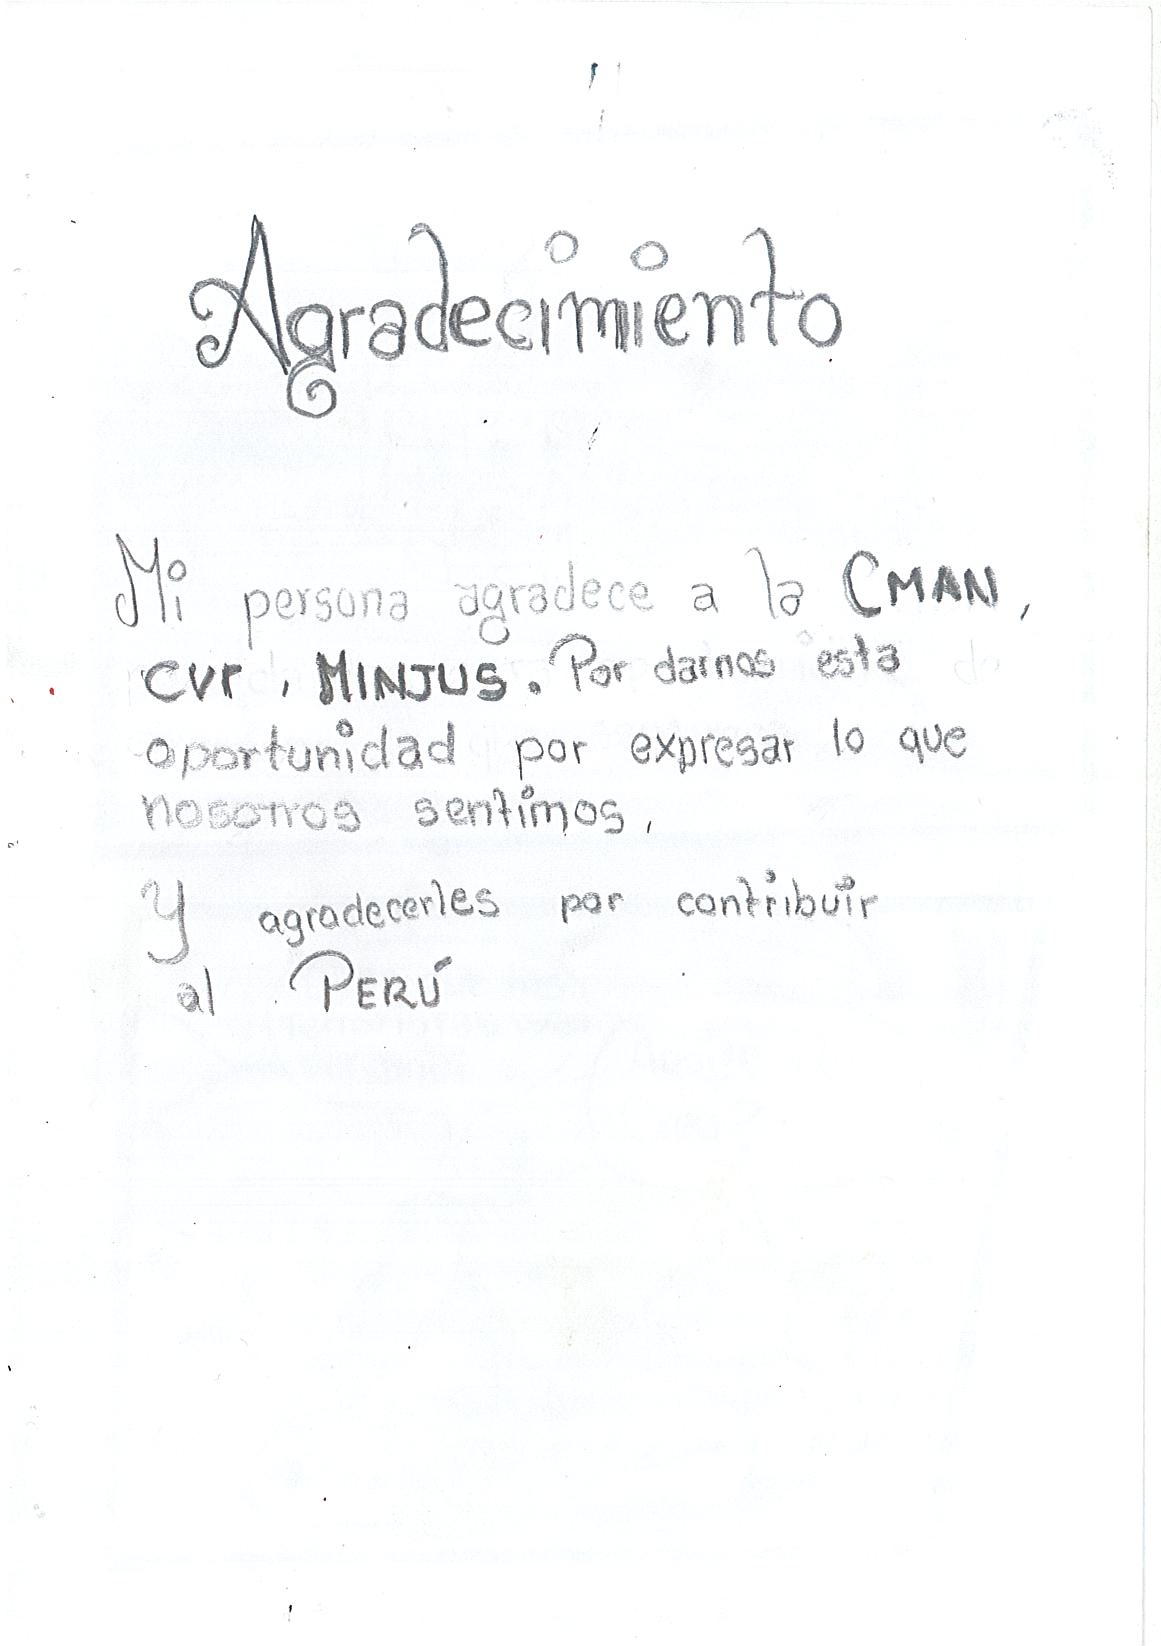 Agradecimiento
Mi persona agradece a la CMAN,
CVr, MINJUS. Por darnos esta
oportunidad por expresar lo que
nosotros sentimos,
Y agradecerles por contribuir
al PERÚ